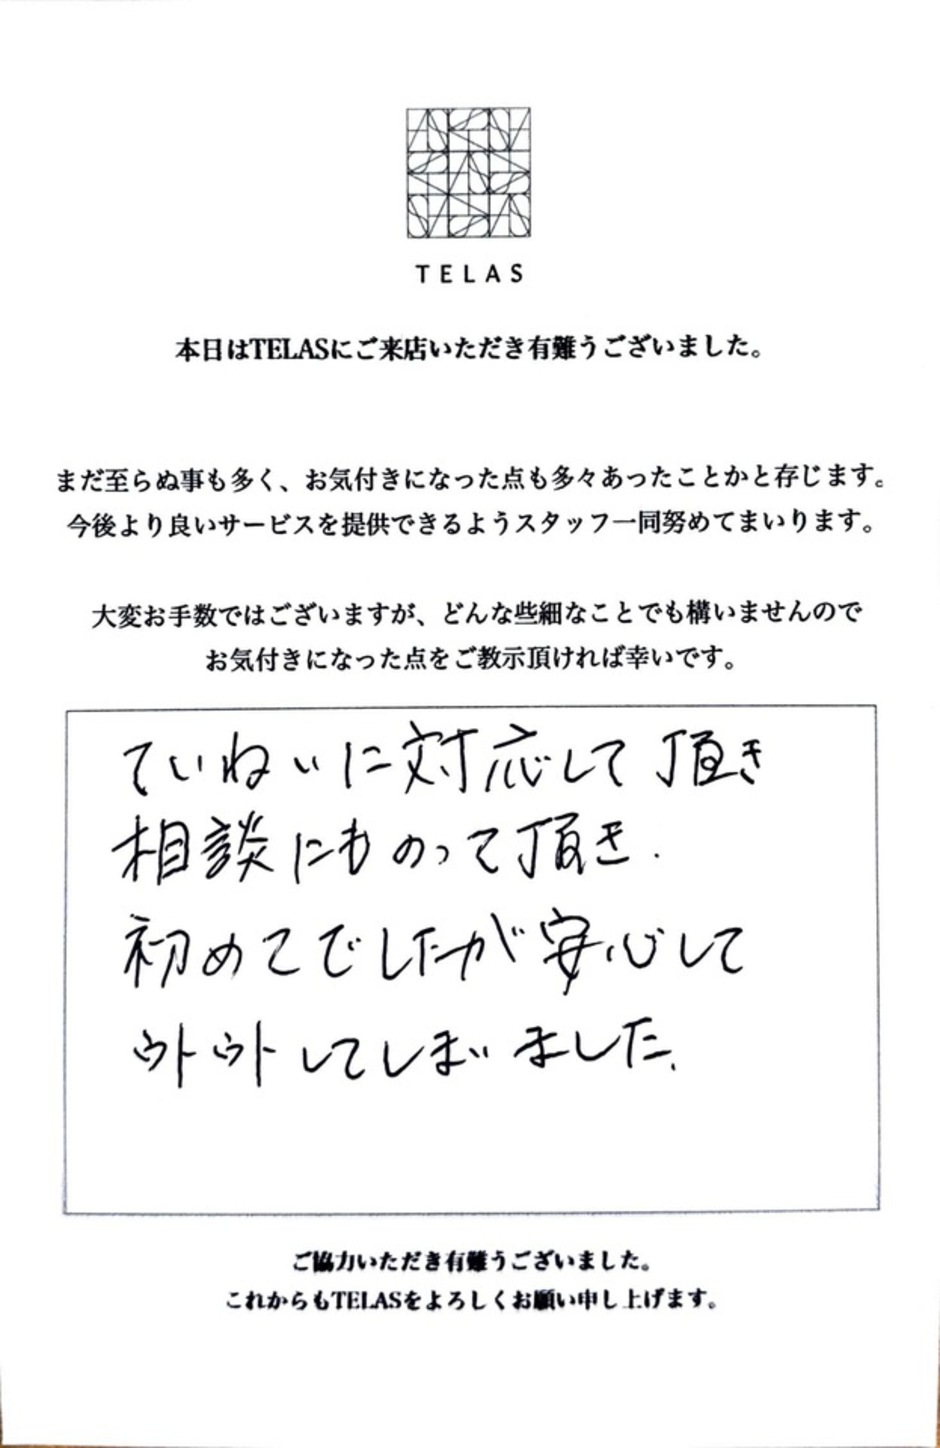 TELAS
本日はTELASにご来店いただき有難うございました。
まだ至らぬ事も多く、お気付きになった点も多々あったことかと存じます。
今後より良いサービスを提供できるようスタッフ一同努めてまいります。
大変お手数ではございますが、どんな些細なことでも構いませんので
お気付きになった点をご教示頂ければ幸いです。
ていねいに対応して頂き
相談にものって頂き.
初めてでしたが安心して
ウトウトしてしまいました.
ご協力いただき有難うございました。
これからもTELASをよろしくお願い申し上げます。